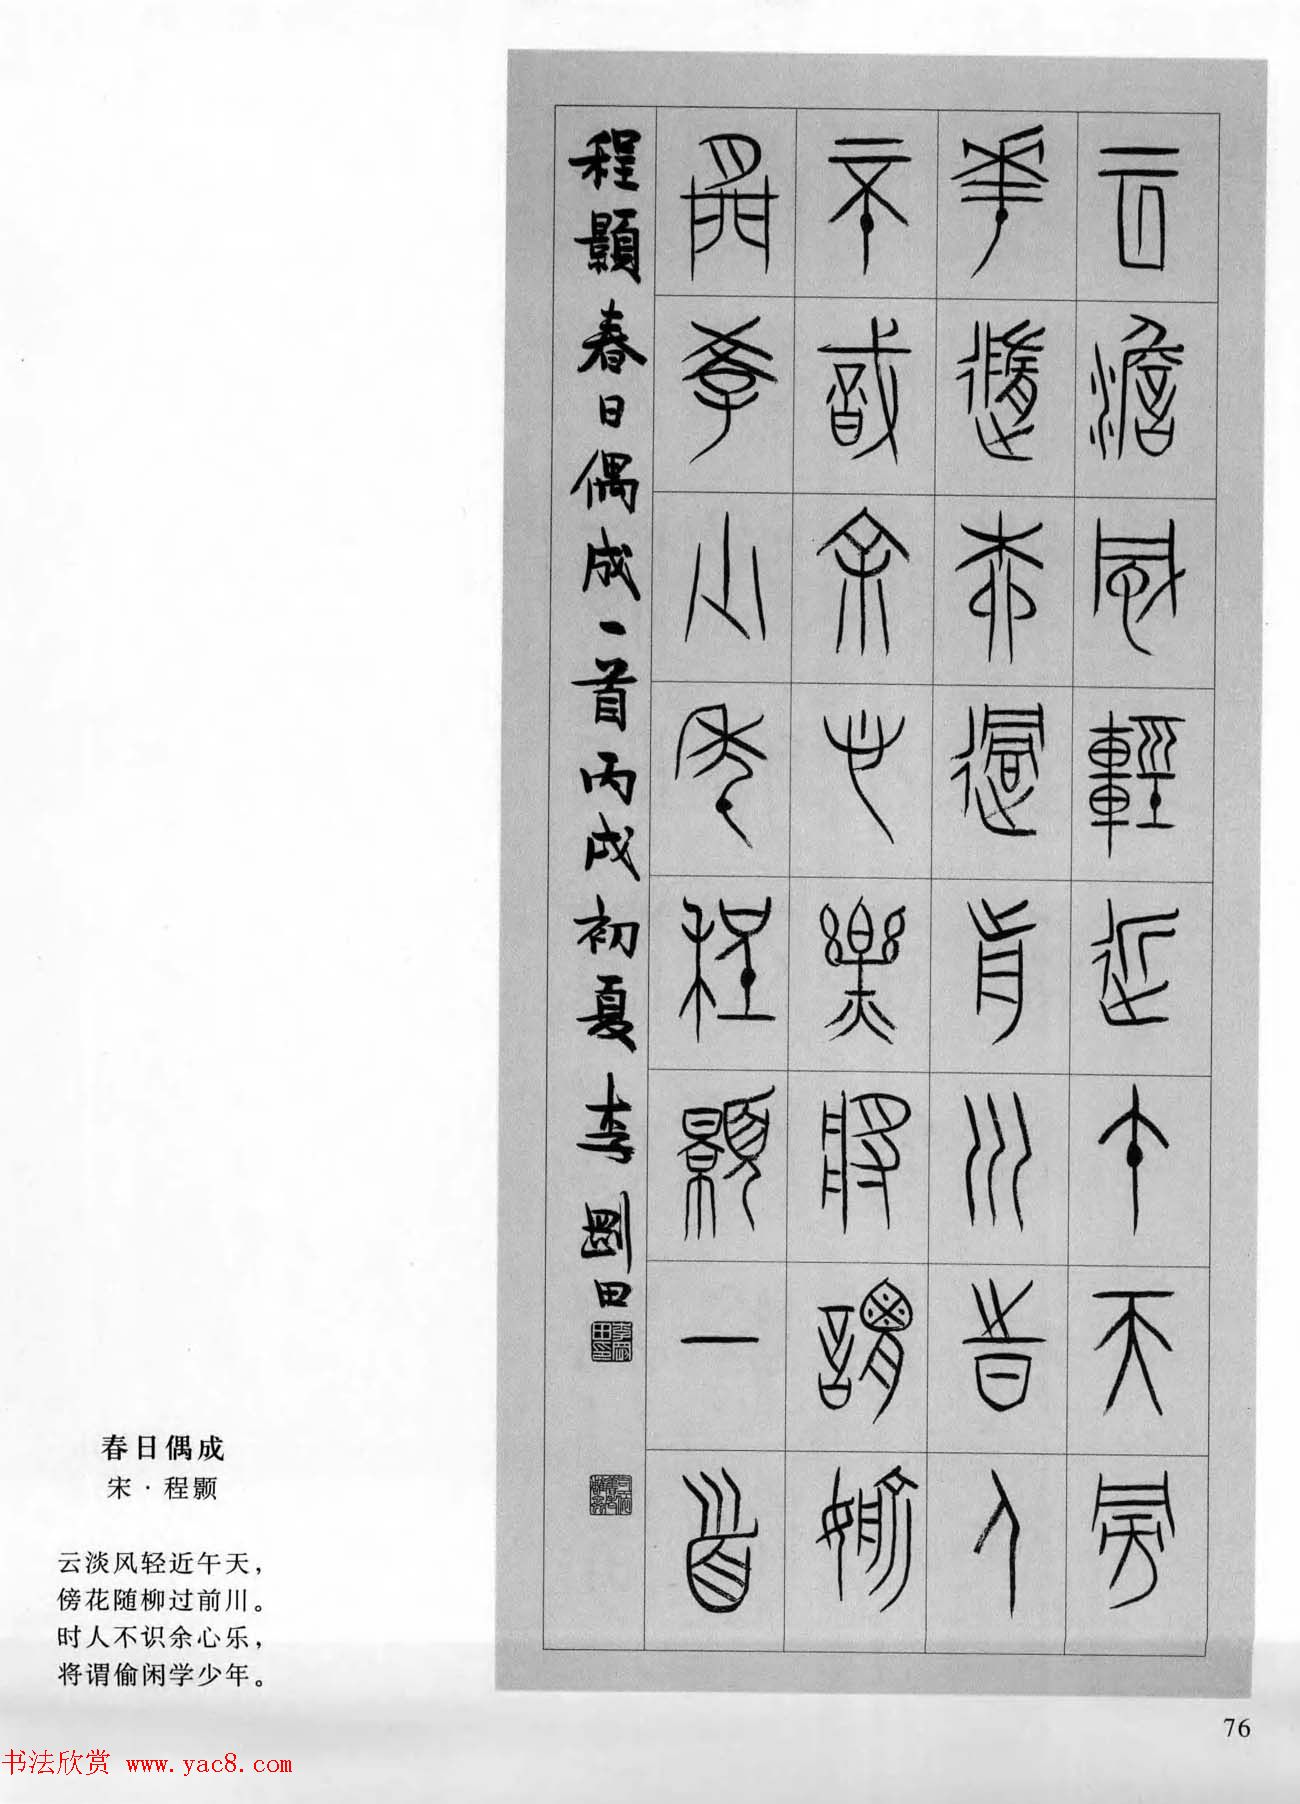 云澹風輕近午天旁
華隨柳過前川旹人
不識余心樂將謂媮
閒學少年程顥一首
程顥春日偶成一首丙戌初夏李剛田
春日偶成
宋·程颢
云淡风轻近午天，
傍花随柳过前川。
时人不识余心乐，
将谓偷闲学少年。
76
书法欣赏 www.yac8.com